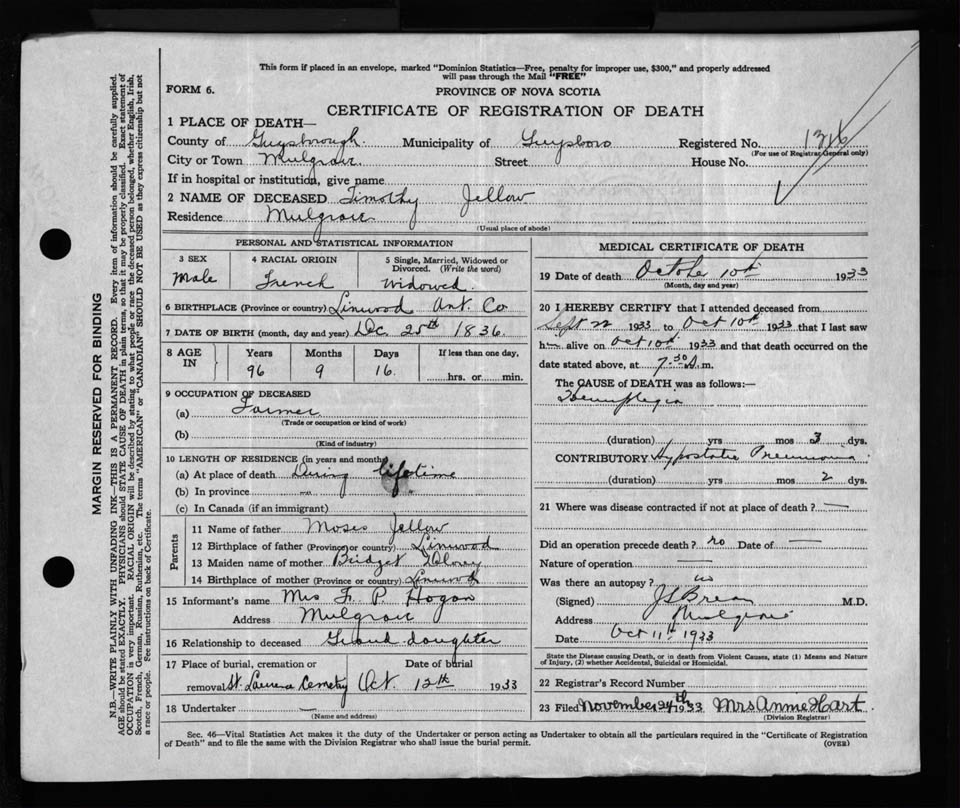 This form if placed in an envelope, marked "Dominion Statistics—Free, penalty for improper use, $300," and properly addressed
will pass through the Mail "FREE"
FORM 6.
PROVINCE OF NOVA SCOTIA
CERTIFICATE OF REGISTRATION OF DEATH
1 PLACE OF DEATH—
County of Guysborough Municipality of Guysboro Registered No. 1316
(For use of Registrar General only)
City or Town Mulgrave Street House No.
If in hospital or institution, give name
2 NAME OF DECEASED Timothy Jellow
Residence Mulgrave
(Usual place of abode)
PERSONAL AND STATISTICAL INFORMATION
3 SEX 4 RACIAL ORIGIN 5 Single, Married, Widowed or Divorced. (Write the word)
Male French Widowed
6 BIRTHPLACE (Province or country) Linwood Ant. Co
7 DATE OF BIRTH (month, day and year) Dec. 25th 1836.
8 AGE IN Years Months Days If less than one day,
96 9 16. hrs. or min.
9 OCCUPATION OF DECEASED
(a) Farmer
(Trade or occupation or kind of work)
(b)
(Kind of industry)
10 LENGTH OF RESIDENCE (in years and months)
(a) At place of death During lifetime
(b) In province
(c) In Canada (if an immigrant)
Parents
11 Name of father Moses Jellow
12 Birthplace of father (Province or country) Linwood
13 Maiden name of mother Bridget
14 Birthplace of mother (Province or country) Linwood
15 Informant's name Mrs F. P. Hogan
Address Mulgrave
16 Relationship to deceased Grand daughter
17 Place of burial, cremation or removal Date of burial
St. Laurence Cemetry Oct. 12th 1933
18 Undertaker —
(Name and address)
MEDICAL CERTIFICATE OF DEATH
19 Date of death October 10th 1933
(Month, day and year)
20 I HEREBY CERTIFY that I attended deceased from
Sept 22 1933 to Oct 10th 1933 that I last saw
h— alive on Oct 10th 1933 and that death occurred on the
date stated above, at 7.30 A.m.
The CAUSE of DEATH was as follows:—
(duration) yrs mos 3 dys.
CONTRIBUTORY Hypostatic Pneumonia
(duration) yrs mos 2 dys.
21 Where was disease contracted if not at place of death? —
Did an operation precede death? no Date of —
Nature of operation —
Was there an autopsy? no
(Signed) M.D.
Address Mulgrave
Date Oct 11th 1933
State the Disease causing Death, or in death from Violent Causes, state (1) Means and Nature
of Injury, (2) whether Accidental, Suicidal or Homicidal.
22 Registrar's Record Number
23 Filed November 24th 1933 Mrs Annie Hart
(Division Registrar)
Sec. 46—Vital Statistics Act makes it the duty of the Undertaker or person acting as Undertaker to obtain all the particulars required in the "Certificate of Registration
of Death" and to file the same with the Division Registrar who shall issue the burial permit.
(OVER)
MARGIN RESERVED FOR BINDING
N.B.—WRITE PLAINLY WITH UNFADING INK—THIS IS A PERMANENT RECORD. Every item of information should be carefully supplied.
AGE should be stated EXACTLY. PHYSICIANS should STATE CAUSE OF DEATH in plain terms, so that it may be properly classified. Exact statement of
OCCUPATION is very important. RACIAL ORIGIN will be described by stating to what people or race the deceased person belonged, whether English, Irish,
Scotch, French, German, Russian, Ruthenian, etc. The terms "AMERICAN" or "CANADIAN" SHOULD NOT BE USED as they express citizenship but not
a race or people. See instructions on back of Certificate.